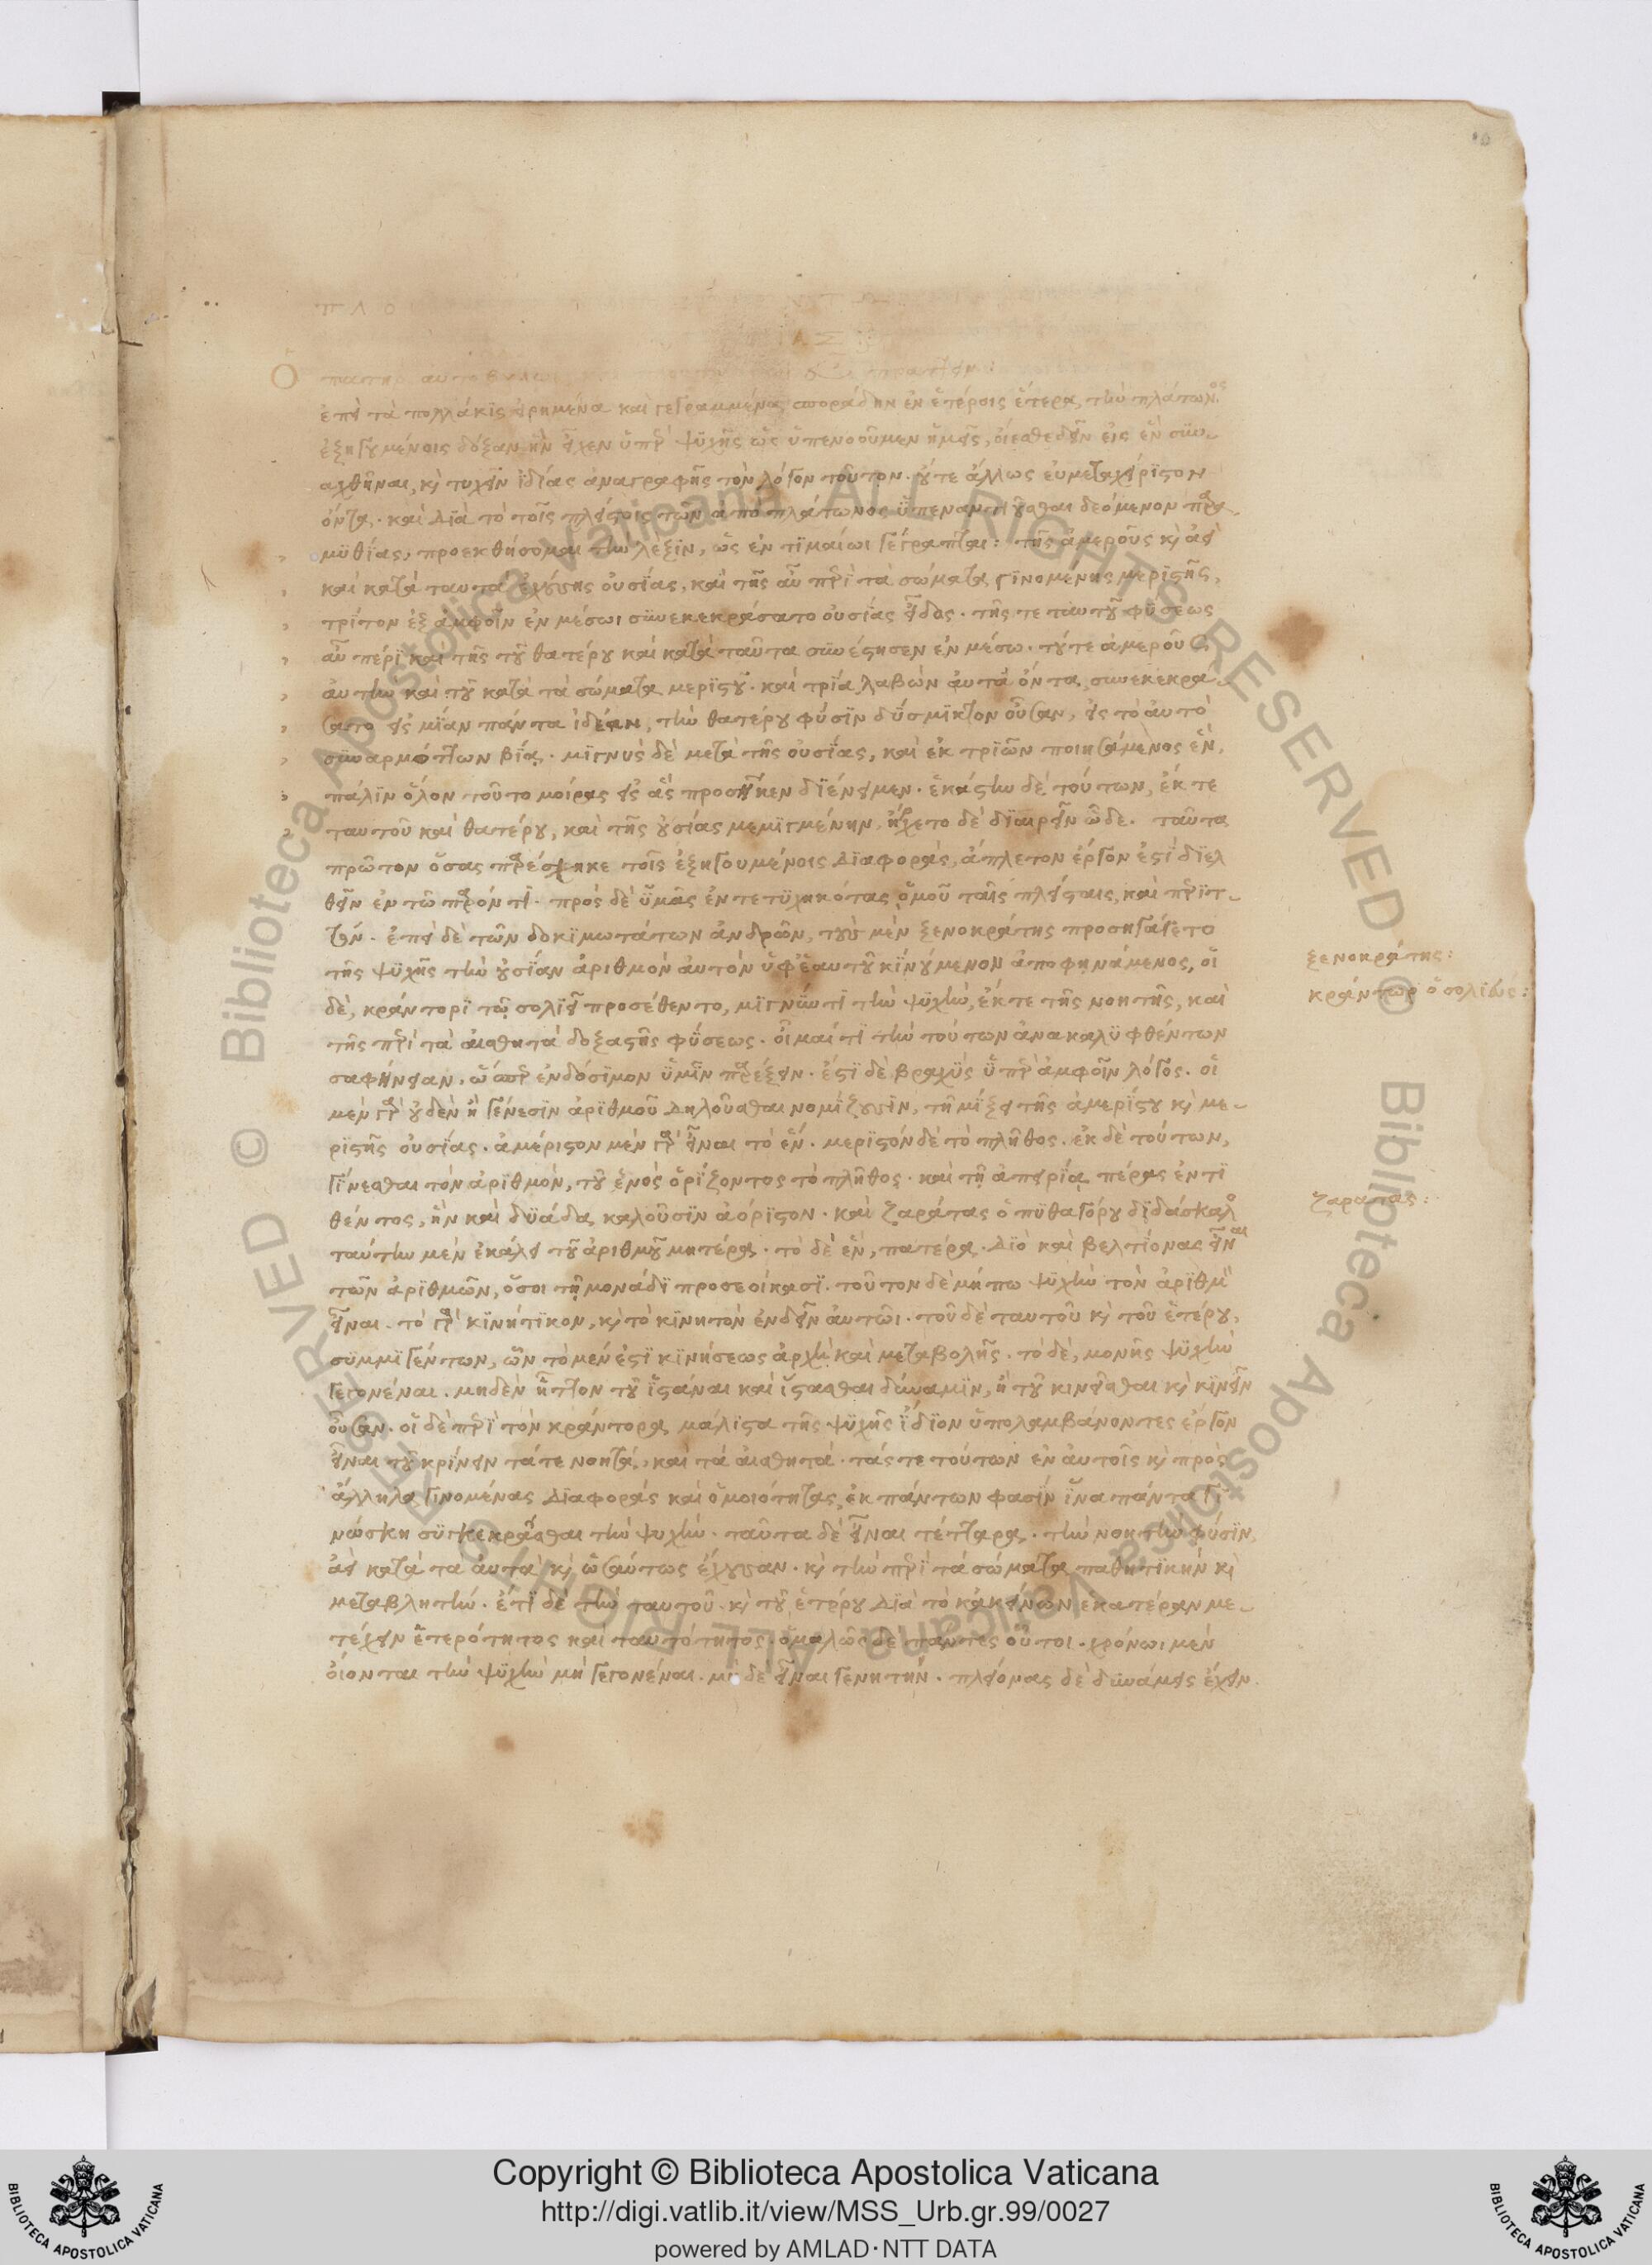 πλο
Ὁ πατὴρ αυτοβουλωι
ἐπεὶ τὰ πολλάκις εἰρημένα καὶ γεγραμμένα σποράδην ἐν ἑτέροις ἕτερα τὴν πλάτωνος
ἐξηγουμένοις δόξαν ἣν εἶχεν ὑπὲρ ψυχῆς ὡς ὑπενοοῦμεν ἡμεῖς, οἴεσθε δεῖν εἰς ἓν συν-
αχθῆναι, κὶ τυχεῖν ἰδίας ἀναγραφῆς τὸν λόγον τοῦτον. οὔτε ἄλλως εὐμεταχείριστον
ὄντα. καὶ διὰ τὸ τοῖς πλείστοις τῶν ἀπὸ πλάτωνος ὑπεναντιοῦσθαι δεόμενον παρα-
μυθίας, προεκθήσομαι τὴν λέξιν, ὡς ἐν τιμαίωι γέγραπται: τῆς ἀμεροῦς κὶ ἀεὶ
καὶ κατὰ ταυτὰ ἐχούσης οὐσίας, καὶ τῆς αὖ περὶ τὰ σώματα γινομένης μεριστῆς,
τρίτον ἐξ ἀμφοῖν ἐν μέσωι συνεκεκράσατο οὐσίας εἶδος. τῆς τε ταυτοῦ φύσεως
αὖ πέρι καὶ τῆς τοῦ θατέρου καὶ κατὰ ταῦτα συνέστησεν ἐν μέσω. τοῦτε ἀμεροῦς
αὐτὴν καὶ τοῦ κατὰ τὰ σώματα μεριστοῦ. καὶ τρία λαβὼν αὐτὰ ὄντα, συνεκεκρά-
σατο εἰς μίαν πάντα ἰδέαν, τὴν θατέρου φύσιν δύσμικτον οὖσαν, εἰς τὸ αὐτὸ
συναρμόττων βίᾳ. μιγνὺς δὲ μετὰ τῆς οὐσίας, καὶ ἐκ τριῶν ποιησάμενος ἓν,
πάλιν ὅλον τοῦτο μοίρας εἰς ἃς προσῆκεν διένειμεν. ἑκάστην δὲ τούτων, ἔκ τε
ταυτοῦ καὶ θατέρου, καὶ τῆς οὐσίας μεμιγμένην. ἤρχετο δὲ διαιρεῖν ὧδε. ταῦτα
πρῶτον ὅσας παρέσχηκε τοῖς ἐξηγουμένοις διαφορὰς, ἄπλετον ἔργον ἐστὶ διελ
θεῖν ἐν τῶ παρόντι. πρὸς δὲ ὑμᾶς ἐντετυχηκότας ὁμοῦ ταῖς πλείσταις, καὶ περιτ-
τόν. ἐπεὶ δὲ τῶν δοκιμωτάτων ἀνδρῶν, τοὺς μὲν ξενοκράτης προσηγάγετο
τῆς ψυχῆς τὴν οὐσίαν ἀριθμὸν αὐτὸν ὑφ᾽ ἑαυτοῦ κινούμενον ἀποφηνάμενος, οἱ
δὲ, κράντορι τῷ σολεῖ προσέθεντο, μιγνύντι τὴν ψυχὴν, ἔκτε τῆς νοητῆς, καὶ
τῆς περὶ τὰ αἰσθητὰ δοξαστῆς φύσεως. οἶμαί τι τὴν τούτων ἀνακαλυφθέντων
σαφήνειαν, ὥσπερ ἐνδόσιμον ὑμῖν παρέξειν. ἔστι δὲ βραχὺς ὑπὲρ ἀμφοῖν λόγος. οἱ
μὲν γὰρ οὐδὲν ἢ γένεσιν ἀριθμοῦ δηλοῦσθαι νομίζουσιν, τῆ μίξει τῆς ἀμερίστου κὶ με-
ριστῆς οὐσίας. ἀμέριστον μὲν γὰρ εἶναι τὸ ἕν. μεριστὸν δὲ τὸ πλῆθος. ἐκ δὲ τούτων,
γίνεσθαι τὸν ἀριθμὸν, τοῦ ἑνὸς ὁρίζοντος τὸ πλῆθος. καὶ τῆ ἀπειρίᾳ πέρας ἐντι
θέντος, ἣν καὶ δυάδα καλοῦσιν ἀόριστον. καὶ ζαράτας ὁ πυθαγόρου διδάσκαλος
ταύτην μὲν ἐκάλει τοῦ ἀριθμοῦ μητέρα. τὸ δὲ ἓν, πατέρα. διὸ καὶ βελτίονας εἶναι
τῶν ἀριθμῶν, ὅσοι τῇ μονάδι προσεοίκασι. τοῦτον δὲ μήπω ψυχὴν τὸν ἀριθμὸν
εἶναι. τὸ γὰρ κινητικον, κὶ τὸ κινητὸν ἐνδεῖν αὐτῶι. τοῦ δὲ ταυτοῦ κὶ τοῦ ἑτέρου,
συμμιγέντων, ὧν τὸ μέν ἐστι κινήσεως ἀρχὴ καὶ μεταβολῆς. τὸ δὲ, μονῆς ψυχὴν
γεγονέναι. μηδὲν ἧττον τοῦ ἱστάναι καὶ ἵστασθαι δύναμιν, ἢ τοῦ κινεῖσθαι κὶ κινεῖν
οὖσαν. οἱ δὲ περὶ τὸν κράντορα μάλιστα τῆς ψυχῆς ἴδιον ὑπολαμβάνοντες ἔργον
εἶναι τοῦ κρίνειν τάτε νοητὰ, καὶ τὰ αἰσθητά. τάς τε τούτων ἐν αὐτοῖς κὶ πρὸς
ἄλληλα γινομένας διαφορὰς καὶ ὁμοιότητας ἐκ πάντων φασὶν ἵνα πάντα γι
νώσκη συγκεκρᾶσθαι τὴν ψυχὴν. ταῦτα δὲ εἶναι τέτταρα. τὴν νοητὴν φύσιν,
ἀεὶ κατὰ τα αὐτὰ κὶ ὡσαύτως ἔχουσαν. κὶ τὴν περὶ τὰ σώματα παθητικὴν κὶ
μεταβλητὴν. ἔτι δὲ τὴν ταυτοῦ. κὶ τοῦ ἑτέρου διὰ τὸ κἀκείνων ἑκατέραν με-
τέχειν ἑτερότητος καὶ ταυτότητος. ὁμαλῶς δὲ πάντες οὗτοι. χρόνωι μὲν
οἴονται τὴν ψυχὴν μὴ γεγονέναι. μὴ δὲ εἶναι γενητήν. πλείονας δὲ δυνάμεις ἔχειν
ξενοκράτης:
κράντωρ ὁ σολιεύς:
ζαρατας:
Copyright © Biblioteca Apostolica Vaticana
http://digi.vatlib.it/view/MSS_Urb.gr.99/0027
powered by AMLAD·NTT DATA
BIBLIOTECA APOSTOLICA VATICANA
BIBLIOTECA APOSTOLICA VATICANA
© Biblioteca Apostolica Vaticana ALL RIGHTS RESERVED
© Biblioteca Apostolica Vaticana ALL RIGHTS RESERVED